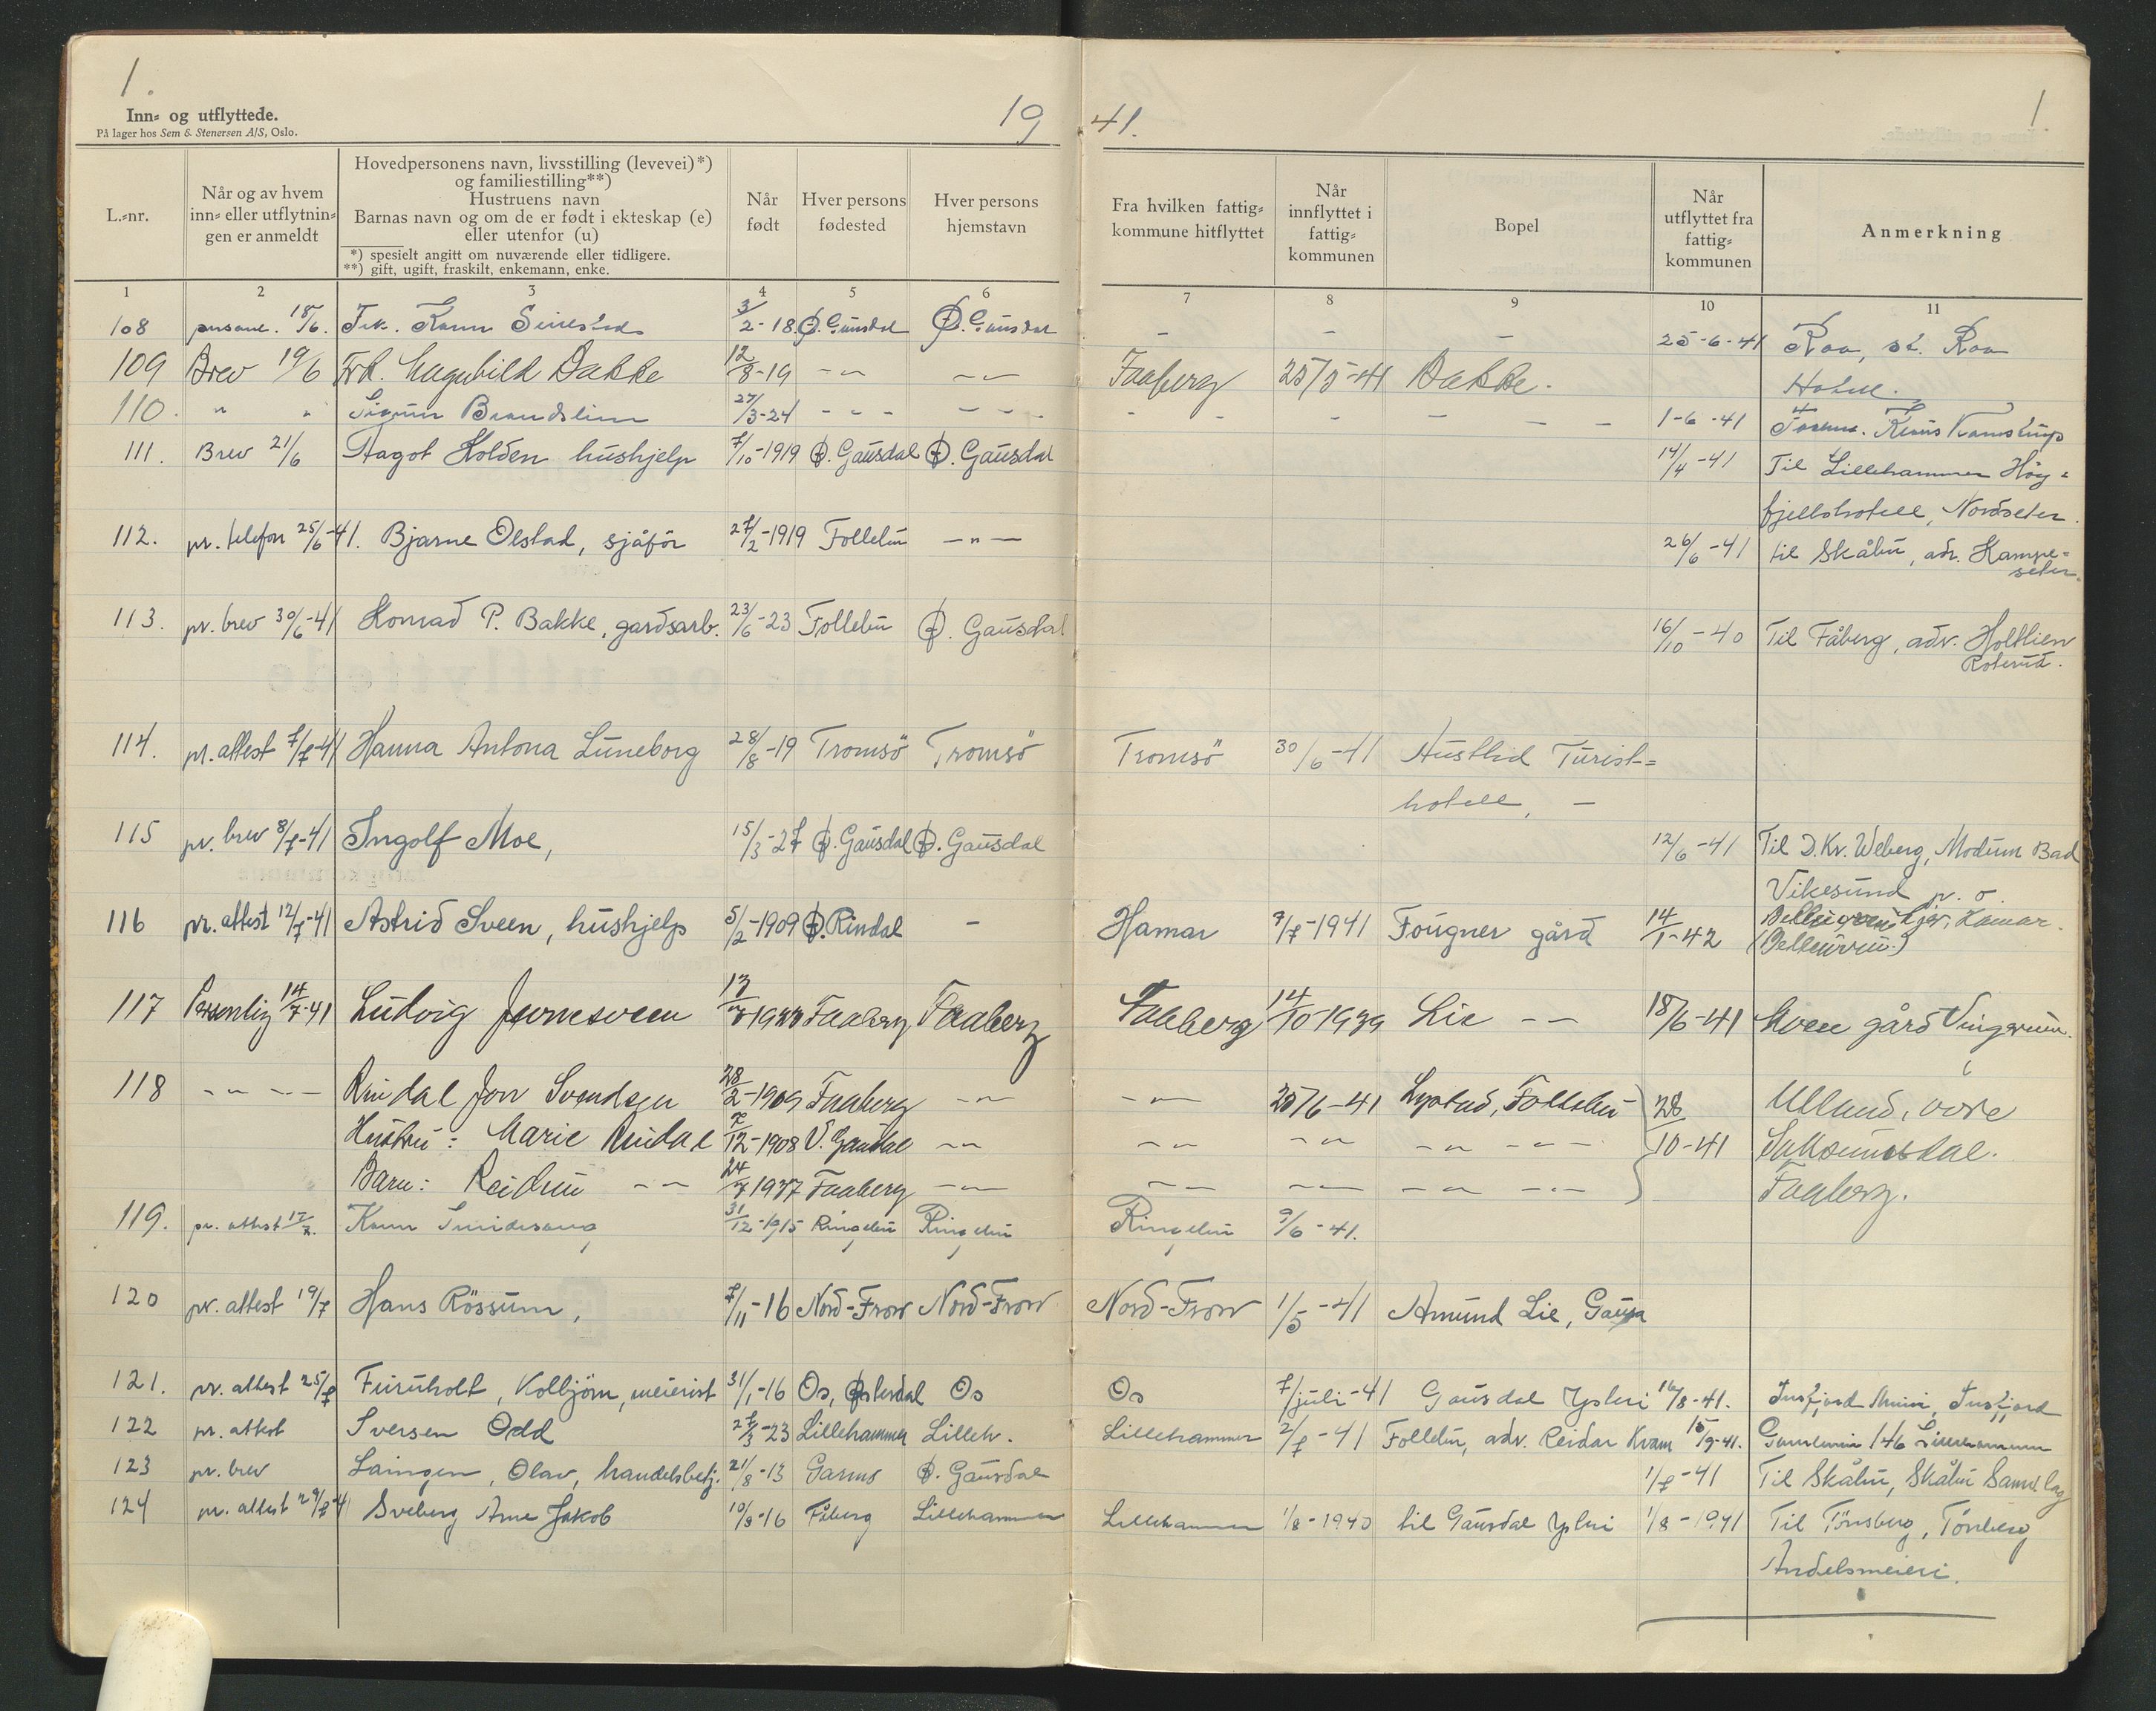 1.
Inn- og utflyttede.
På lager hos Sem & Stenersen A/S, Oslo.
19 41.
1
L.-nr.
Når og av hvem inn- eller utflytnin- gen er anmeldt
Hovedpersonens navn, livsstilling (levevei)*) og familiestilling**)
Hustruens navn
Barnas navn og om de er født i ekteskap (e) eller utenfor (u)
*) spesielt angitt om nuværende eller tidligere.
**) gift, ugift, fraskilt, enkemann, enke.
Når født
Hver persons fødested
Hver persons hjemstavn
Fra hvilken fattig- kommune hitflyttet
Når innflyttet i fattig- kommunen
Bopel
Når utflyttet fra fattig- kommunen
Anmerkning
1 2 3 4 5 6 7 8 9 10 11
108 18/6. Frk. Karin 3/2-18 Ø. Gausdal Ø. Gausdal – – – 25-6-41 Roa, st. Roa
109 Brev 19/6 Frk. Bakke 12/8-19 -"- -"- Faaberg 25/5-41 Bakke. Hotel.
110. " " Sigrun 27/3-24 - - - - - - - - - - - - 1-6-41
111. Brev 21/6 Aagot Holden hushjelp 7/10-1919 Ø. Gausdal Ø. Gausdal 14/4-41 Til Lillehammer Høy-
fjellshotell, Nordseter.
112. pr. telefon 25/6-41. Bjarne Olstad, sjåför 27/2-1919 Follebu -"- 26/6-41 til Skåbu, adr. Kampe-
seter.
113. pr. brev 30/6-41 Konrad P. Bakke, gardsarb. 23/6-23 Follebu Ø. Gausdal 16/10-40 Til Fåberg, adr. Holtlien
Roterud.
114. pr. attest 7/7-41 Hanna Antona Luneborg 28/8-19 Tromsö Tromsö Tromsö 30/6-41 Austlid Turist-
hotell, –
115 pr. brev 8/7-41 Ingolf Moe, 15/3-27 Ø. Gausdal Ø. Gausdal 12/6-41 Til D. Kr. Weberg, Modum Bad
Vikesund p. o.
116 pr. attest 12/7-41 Astrid Sveen, hushjelp 5/2-1909 Ø. Rindal – Hamar 7/7-1941 Fougner gård 14/1-42 Hamar.
117 Personlig 14/7-41 Ludvig Jevnesveen Faaberg Faaberg Faaberg 14/10-1939 Lie -- 18/6-41 Moen gård Vingrum.
118 -"- -- Rindal Jon Svendsen 28/2-1909 Faaberg -"- -"- 25/6-41 Follebu 28/10-41 Ulland, øvre
Hustru: Marie Rindal 2/12-1908 V. Gausdal -"- -"- -"- -"- -"- Saksumsdal.
Barn: Reidun -- 24/7 1937 Faaberg -"- -"- -"- -"- -"- Faaberg.
119. pr. attest 17/7. Karin 31/12-1915 Ringebu Ringebu Ringebu 9/6-41.
120 pr. attest 19/7 Hans Rössum, 7/11-16 Nord-Fron Nord-Fron Nord-Fron 1/5-41 Amund Lie, Gausa
121. pr. attest 25/7 Furuholt, Kolbjörn, meierist 31/1-16 Os, Østerdal Os Os 7/juli-41 Gausdal Ysteri 16/8-41.
122 pr. attest Iversen Odd 27/3-23 Lillehammer Lilleh. Lillehammer 2/7-41 Follebu, adr. Reidar Kvam 15/9-41. 146 Lillehammer
123 pr. brev Laingen, Olav, handelsbetj. 21/8-13 Garmo Ø. Gausdal 1/7-41 Til Skåbu, Skåbu Samv.lag
124 pr. attest 29/7-41 Sveberg Arne Jakob 10/8-16 Fåberg Lillehammer Lillehammer 1/8-1940 til Gausdal Ysteri 1/8-1941 Til Tönsberg, Tönsberg
Andelsmeieri.